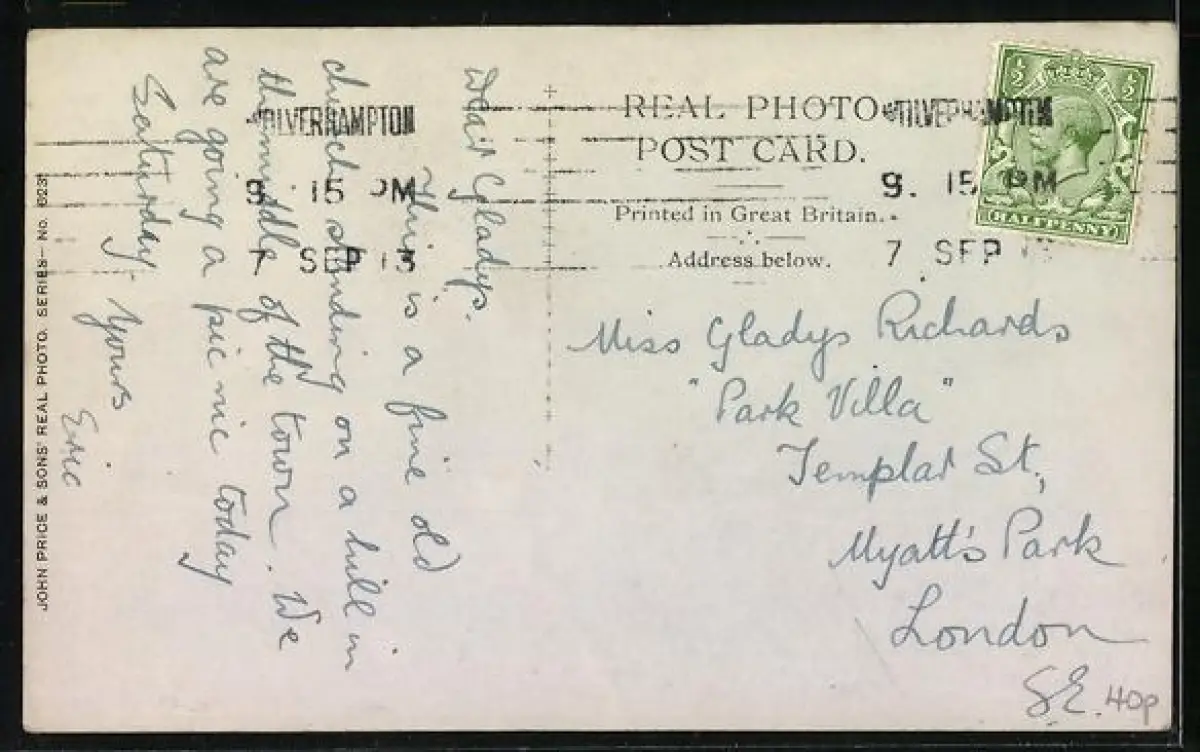 REAL PHOTO
POST CARD.
Printed in Great Britain.
Address below.
WOLVERHAMPTON
9. 15 PM
7 SEP 13
WOLVERHAMPTON
9. 15 PM
7 SEP
½ ½
HALFPENNY
Dear Gladys.
This is a fine old
church standing on a hill in
the middle of the town. We
are going a pic nic today
Saturday. Yours
Eric
Miss Gladys Richards
"Park Villa"
Templar St,
Myatt's Park
London
S.E.
40p
JOHN PRICE & SONS' REAL PHOTO. SERIES—No.